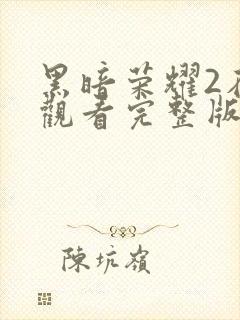 黑暗荣耀2
觀看完整版
陳坑嶺